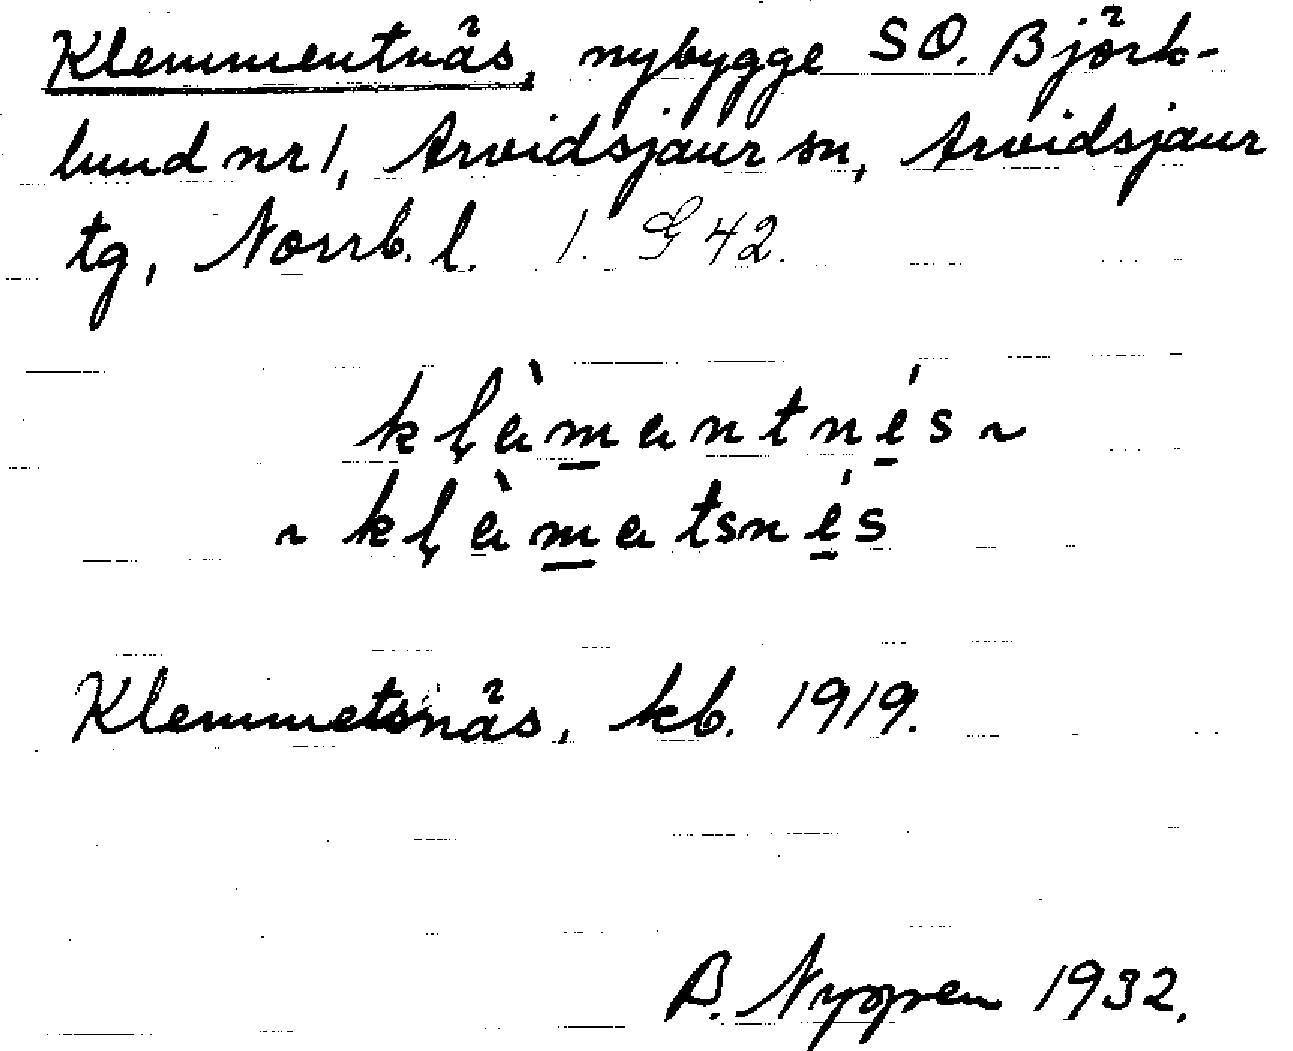 Klemmentnäs, nybygge SO. Björk-
lund nr 1, Arvidsjaur sn, Arvidsjaur
tg, Norrb. l. 1. G 42.
klèmentnés ~
~ klèmetsnés
Klemmetsnäs, kb. 1919.
B. Nygren 1932.